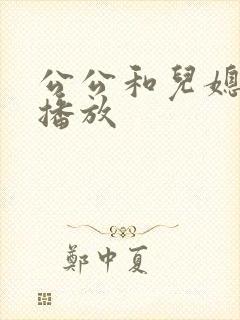 公公和兒媳
播放
鄭中夏